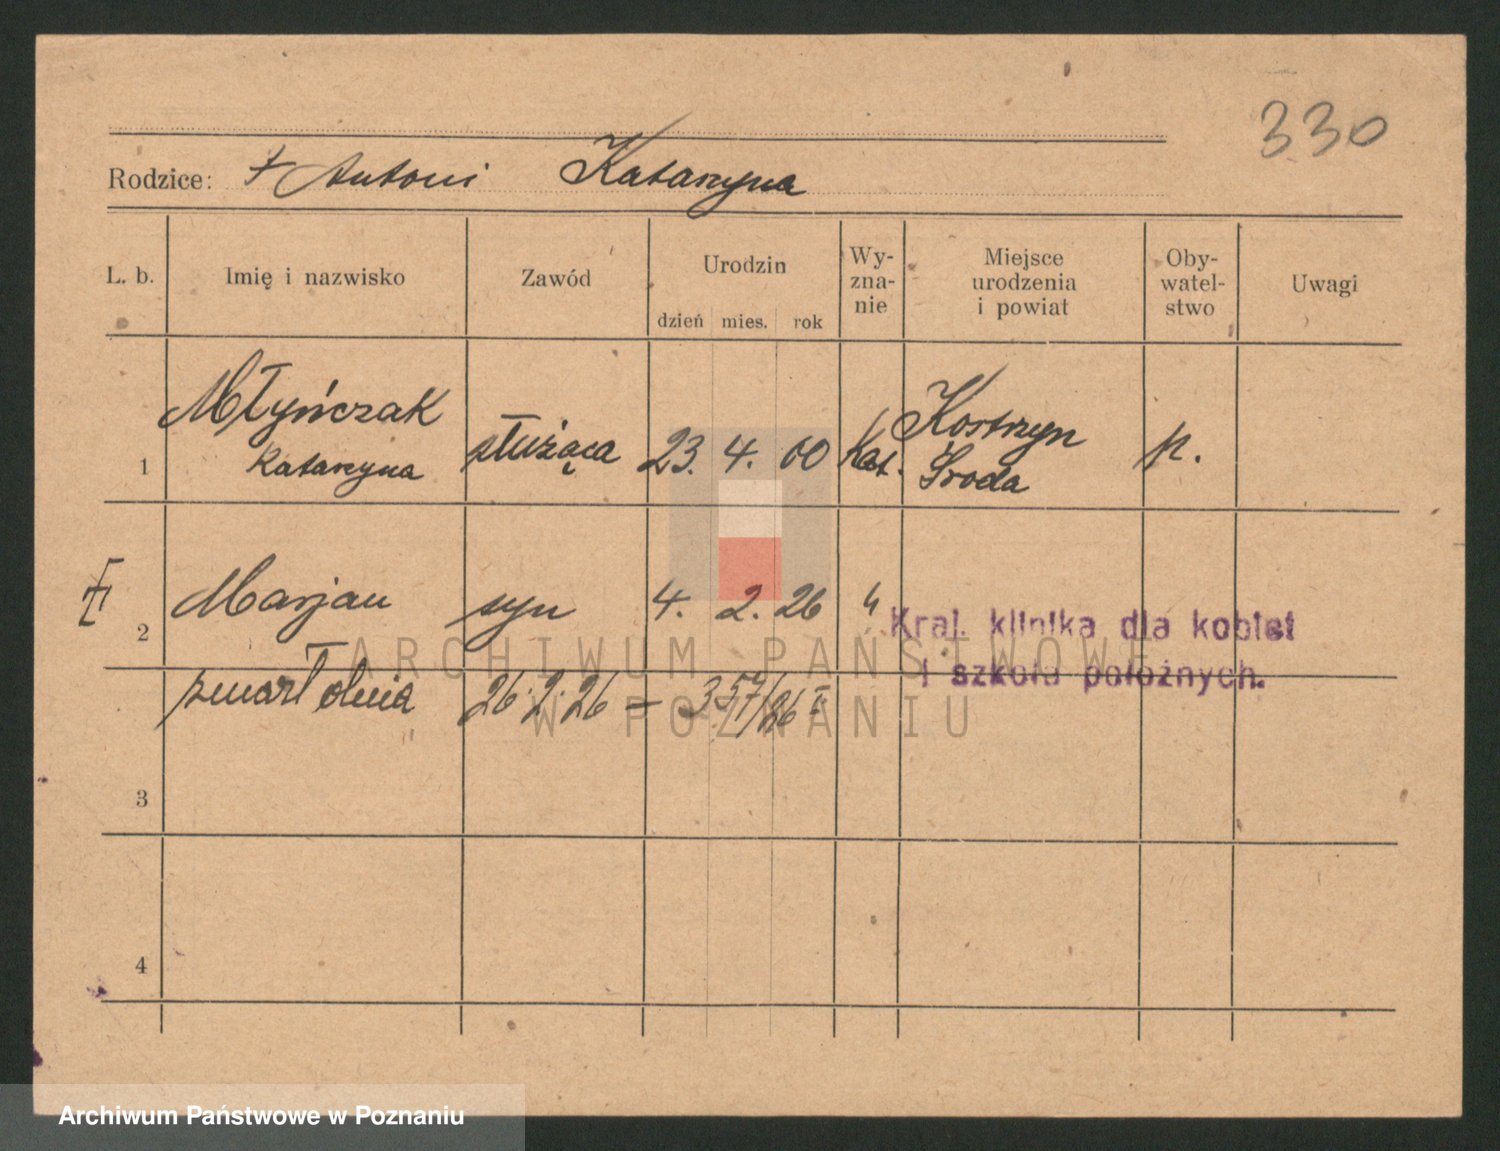 330
Rodzice: † Antoni Katarzyna
L. b. Imię i nazwisko Zawód Urodzin dzień mies. rok Wy-zna-nie Miejsce urodzenia i powiat Oby-watel-stwo Uwagi
1 Młyńczak Katarzyna służąca 23. 4. 00 Kat. Kostrzyn Środa p.
2 Marjan syn 4. 2. 26 "
Kraj. klinika dla kobiet
i szkoła położnych.
zmarł dnia 26.2.26 – 357/26
3
4
ARCHIWUM PAŃSTWOWE
W POZNANIU
Archiwum Państwowe w Poznaniu